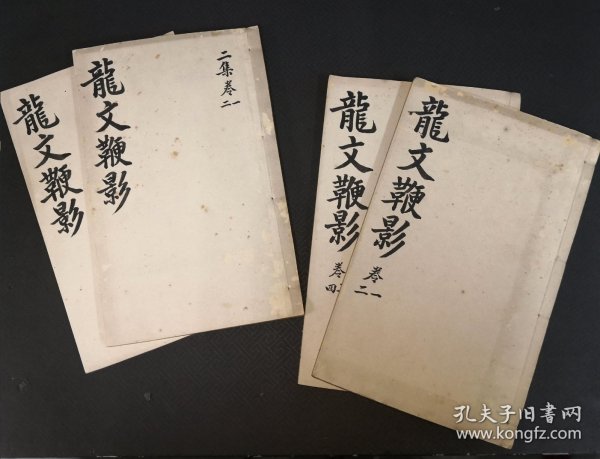 龍文鞭影
龍文鞭影
二集卷一二
龍文鞭影
卷
四
龍文鞭影
卷一二
孔夫子旧書网
www.kongfz.com